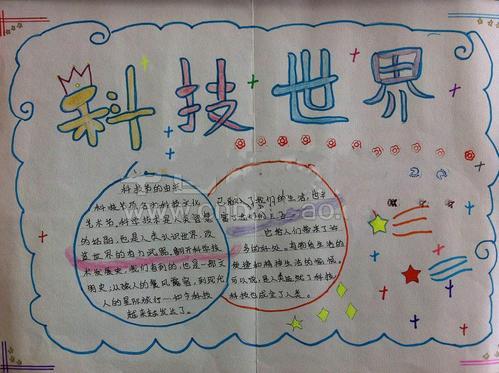 科技世界
科技节的由来
科技节原名为科技文化
艺术节。科学技术是人类智慧
的结晶,也是人类认识世界、改
造世界的有力武器。翻开科学技
术发展史,我们看到的,也是一部文
明史;从猿人的餐风露宿,到现代
人的星际旅行……如今科技
越来越发达了。
已融入了我们的生活,也丰
富了我们的生活。
它给人们带来了许
多的好处。有物质生活的
便捷和精神生活的愉悦。
可以说,是人类延续了科技
科技也成全了人类。